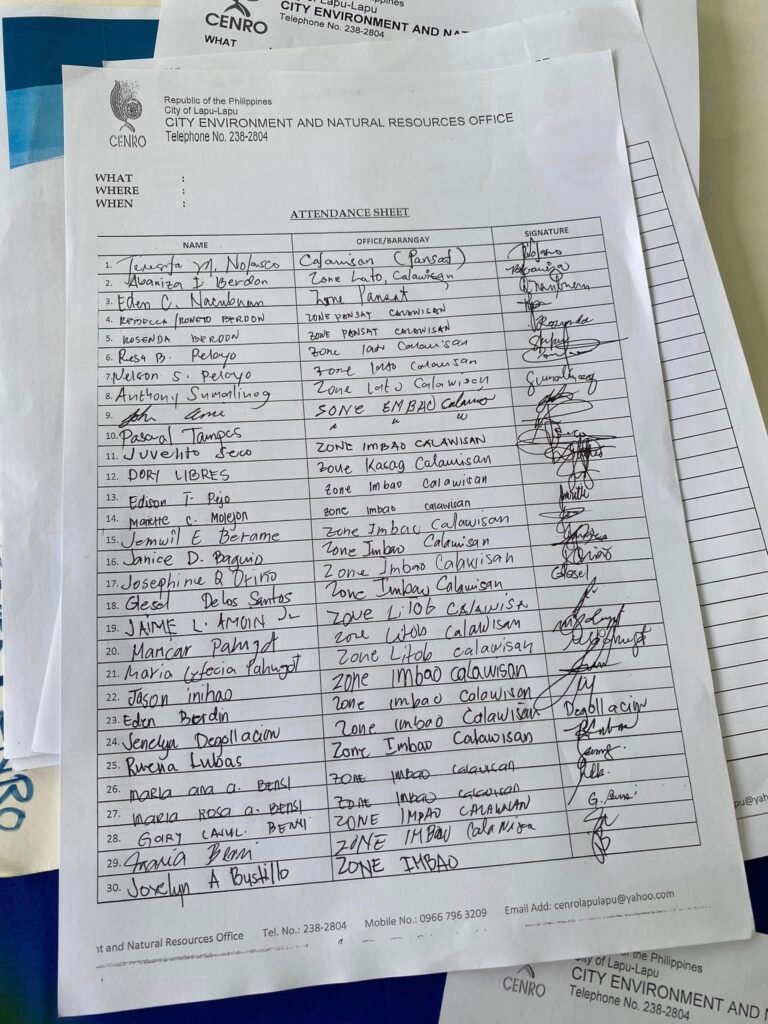 CENRO
City of Lapu-Lapu
CITY ENVIRONMENT AND NAT
Telephone No. 238-2804
WHAT
CENRO
Republic of the Philippines
City of Lapu-Lapu
CITY ENVIRONMENT AND NATURAL RESOURCES OFFICE
Telephone No. 238-2804
WHAT :
WHERE :
WHEN :
ATTENDANCE SHEET
NAME OFFICE/BARANGAY SIGNATURE
1. Teresita M. Nolasco Calawisan (Pansat)
2. Abaniza I. Berdon Zone Lato, Calawisan
3. Eden C. Zone Pansat
4. REBECCA /RONETO BERDON ZONE PANSAT CALAWISAN
5. ROSENDA BERDON ZONE PANSAT CALAWISAN
6. Resa B. Pelayo Zone lato Calawisan
7. Nelson S. Pelayo Zone Lato Calawisan
8. Anthony Sumalinog Zone Lato Calawisan Sumalinog
9. John SONE EMBAO
10. Pascual Tampos " " "
11. Juvelito Seco ZONE IMBAO CALAWISAN
12. DORY LIBRES Zone Kasag Calawisan
13. Edison T. Pejo Zone Imbao Calawisan
14. Mariche C. Molejon Zone Imbao calawisan
15. Jemwil E Berame Zone Imbao Calawisan
16. Janice D. Baguio Zone Imbao Calawisan
17. Josephine Q Oriño Zone Imbao Calawisan
18. Glesel Delos Santos Zone Imbao Calawisan Glesel
19. JAIME L. AMOIN Jr ZONE LITOB CALAWISA
20. Mancar Pahugot Zone Litob Calawisan
21. Maria Pahugot Zone Litob calawisan
22. Jason inihao ZONE IMBAO CALAWISAN
23. Eden Berdin Zone imbao Calawisan
24. Jenelyn Degollacion Zone imbao Calawisan Degollacion
25. Rwena Lubas Zone Imbao Calawisan
26. MARIA ANA A. BENSI ZONE IMBAO CALAWISAN
27. MARIA ROSA A. BENSI ZONE IMBAO CALAWISAN
28. GARY BENSI ZONE IMBAO CALAWISAN G. Bensi
29. Maria Bensi ZONE IMBAO
30. Jovelyn A Bustillo ZONE IMBAO
nt and Natural Resources Office Tel. No.: 238-2804 Mobile No.: 0966 796 3209 Email Add: cenrolapulapu@yahoo.com
pu@yaho
CENRO
of the Philippines
City of Lapu-Lapu
CITY ENVIRONMENT AND
Telephone No. 238-2804